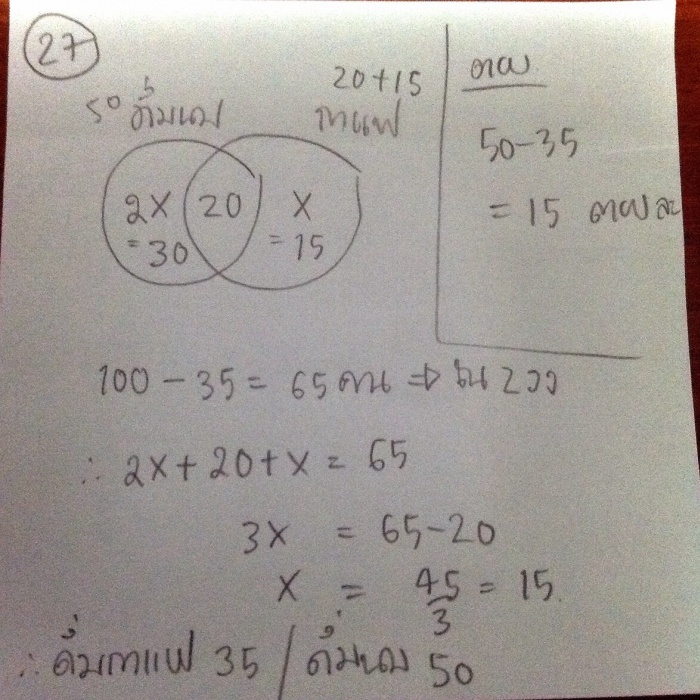 27
50 ดื่มนม
20+15
กาแฟ
2x 20 x
= 30 = 15
ตอบ
50-35
= 15 ตอบ
100 - 35 = 65 คน ⇒ ใน 2 วง
∴ 2x + 20 + x = 65
3x = 65-20
x = 45/3 = 15.
∴ ดื่มกาแฟ 35 / ดื่มนม 50